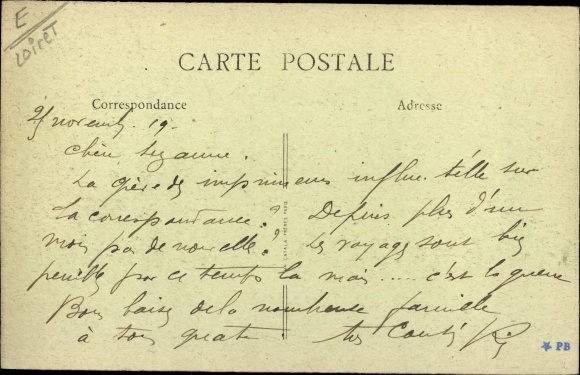 E
Loiret
CARTE POSTALE
Correspondance
Adresse
25 novemb. 19.
chère Suzanne.
La grève des imprimeurs influe t'elle sur
la correspondance? Depuis plus d'un
mois pas de nouvelle! Les voyages sont bien
penible par ce temps la mais ..... c'est la guerre
Bons baisers de la nombreuse famille
à tous quatre
★ PB